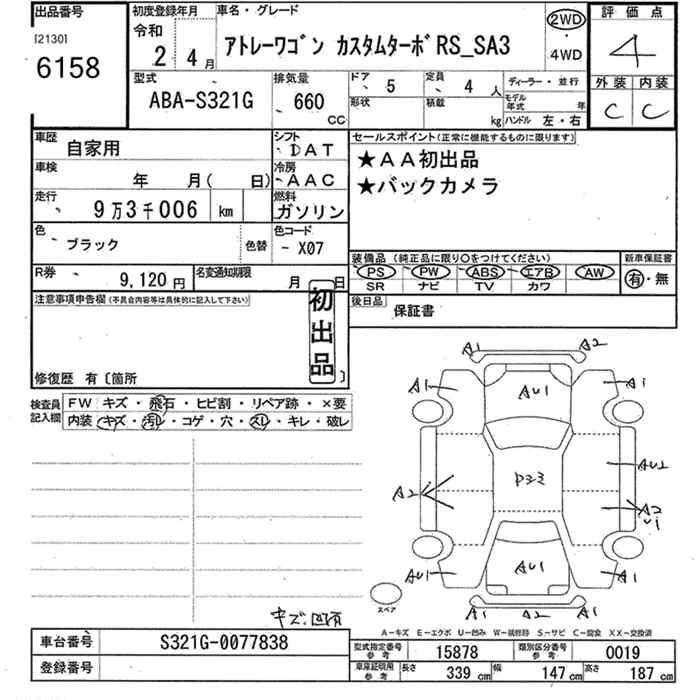 出品番号
[2130]
6158
初度登録年月
令和
2 年 4 月
車名・グレード
アトレーワゴン カスタムターボRS_SA3
2WD
・
4WD
評価点
4
外装 内装
C C
型式
ABA-S321G
排気量
660 CC
ドア 5
定員 4 人
形状
積載 kg
ディーラー・並行
モデル年式 年
ハンドル 左・右
車歴
自家用
シフト
DAT
車検
年 月( 日)
冷房
AAC
走行
9万3千006 km
燃料
ガソリン
色
ブラック
色替
色コード
- X07
R券
9,120 円
名変通知期限
月 日
セールスポイント(正常に機能するものに限ります)
★AA初出品
★バックカメラ
装備品 (純正品に限り○をつけてください)
PS PW ABS エアB AW
SR ナビ TV カワ
新車保証書
有・無
後日品
保証書
注意事項申告欄(不具合内容等は具体的に記入して下さい)
初出品
修復歴 有〔箇所 〕
検査員記入欄
FW キズ・飛石・ヒビ割・リペア跡・×要
内装 キズ・汚レ・コゲ・穴・スレ・キレ・破レ
A1 A2
A1 AU1 A1
P33 AU2
A2 A2
U1
AU1 AU1 A1
スペア
A1 A2 A1
キズ・凹有
A-キズ E-エクボ U-凹み W-補修跡 S-サビ C-腐食 XX-交換済
車台番号 S321G-0077838
登録番号
型式指定番号 参考 15878 類別区分番号 参考 0019
車庫証明用 参考 長さ 339 cm 幅 147 cm 高さ 187 cm